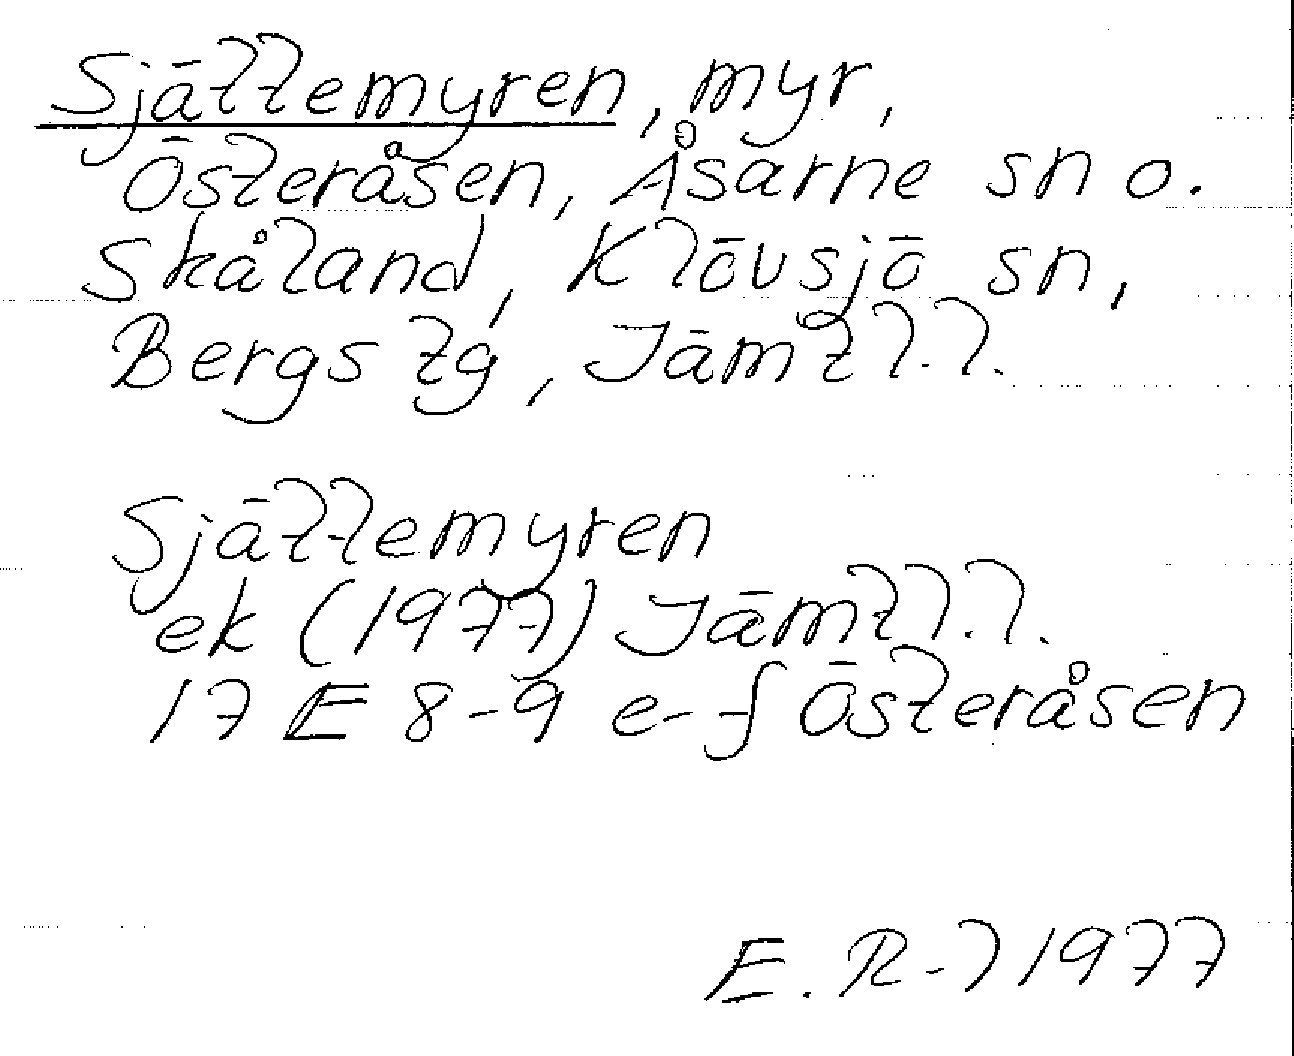 Sjättemyren, myr,
Österåsen, Åsarne sn o.
Skåland, Klövsjö sn,
Bergs tg, Jämtl.l.
Sjättemyren
ek (1977) Jämtl.l.
17 E 8-9 e-f Österåsen
E. R-l 1977